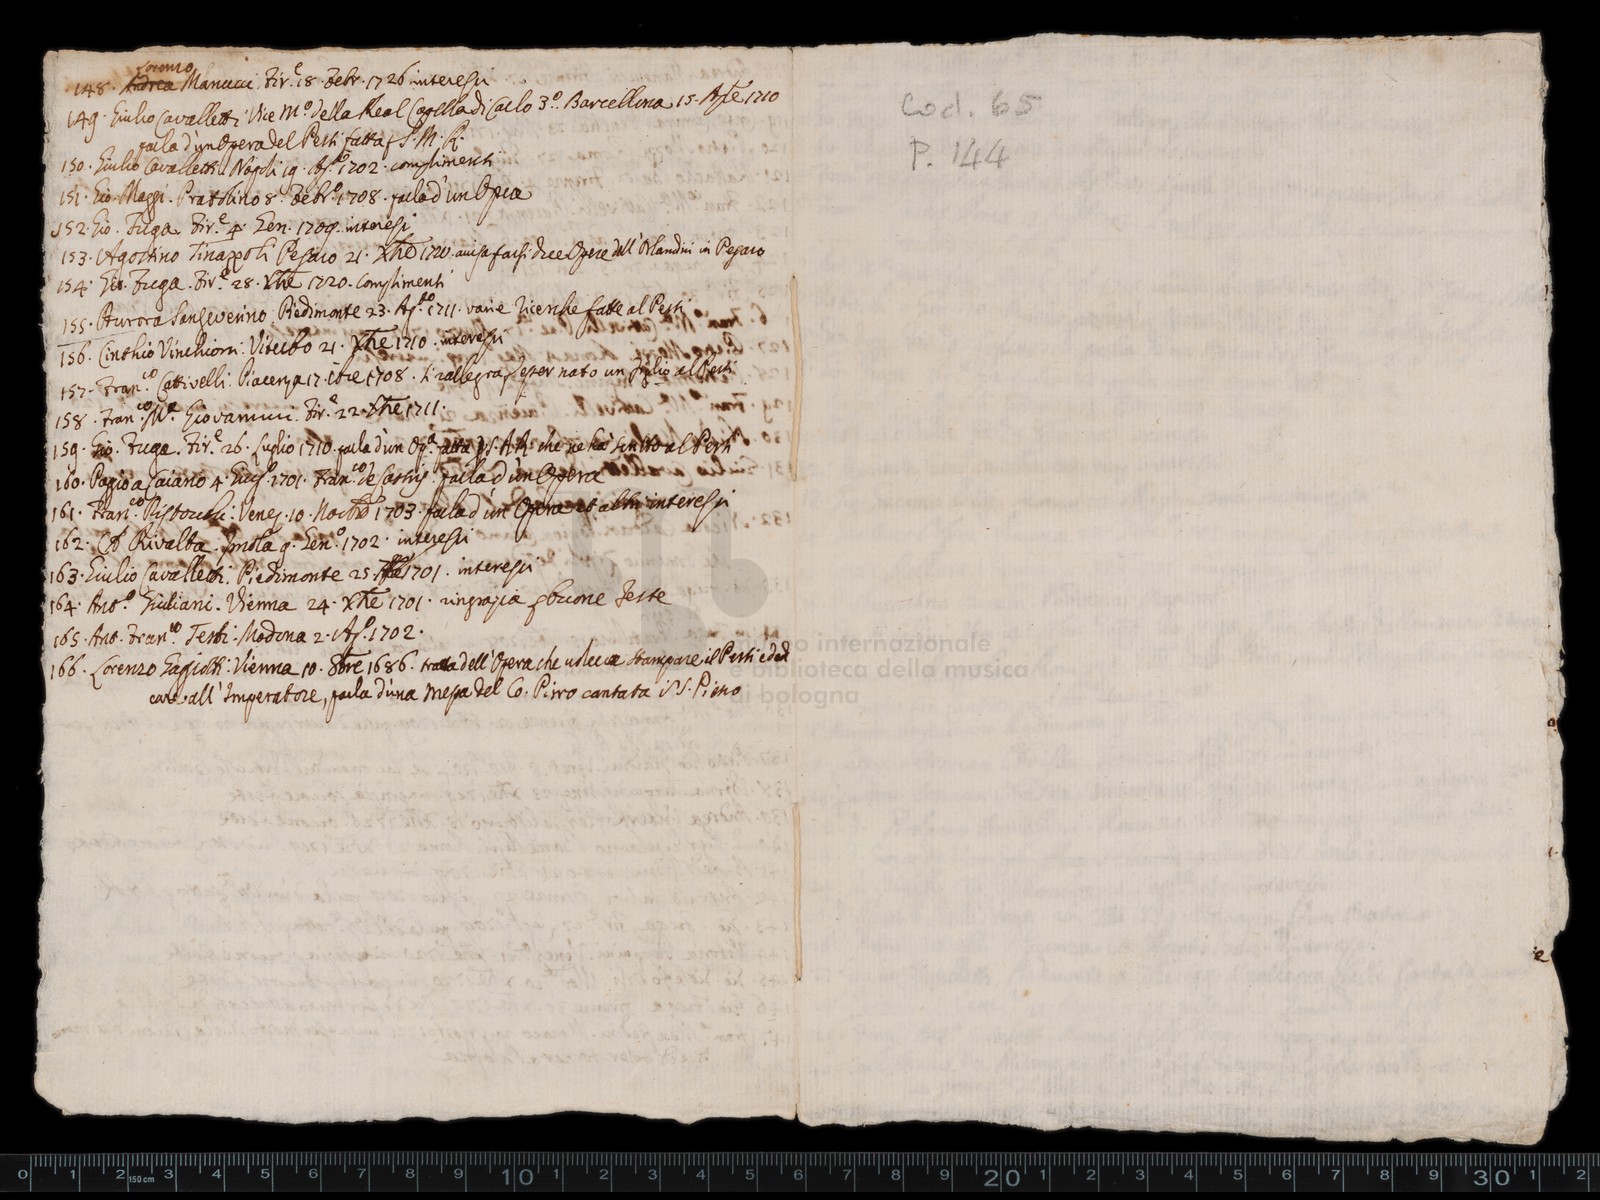 148. Lorenzo Manucci. Fir.e 18. Febr. 1726 interessi
149. Giulio Cavalletti Vice M.o della Real Capella di Carlo 3.o Barcellona 15. 1710
parla d'un Opera del Perti fatta p S. M. R.
150. Giulio Cavalletti Napoli 19. Ag.o 1702. complimenti
151. Gio. Maggi. Pratolino 8. Febr.o 1708. parla d'un Opera
152. Gio. Fuga. Fir.e 4. Gen. 1709. interessi
153. Agostino Pesaro 21. Xbre 1720. avisa farsi due Opere dell' Orlandini in Pesaro
154. Gio. Fuga. Fir.e 28. Xbre 1720. complimenti
155. Aurora Sanseverino. Piedimonte 23. Ag.to 1711. varie ricerche fatte al Perti
156. Cinthio Vinchioni. Viterbo 21. Xbre 1710. interessi
157. Fran.co Cattivelli. Piacenza 17. 1708. si rallegra p esser nato un figlio al Perti
158. Fran.co M.a Giovannini. Fir.e 22. Xbre 1711.
159. Gio. Fuga. Fir.e 26. Luglio 1710. parla d'un Op.a fatta p S. A. R. che ne ha scritto al Perti
160. Poggio a Caiano 4. 1701. Fran.co de Castris parla d'un Opera
161. Fran.co Pistocchi. Venez. 10. Novbre 1703. parla d'un Opera et altri interessi
162. A. Rivalta. Imola 9. Gen.o 1702. interessi
163. Giulio Cavalletti. Piedimonte 25. 1701. interessi
164. Ant.o Giuliani. Vienna 24. Xbre 1701. ringrazia p buone Feste
165. Ant. Fran.co Testi. Modona 2. Ag.o 1702.
166. Lorenzo Gaggiotti. Vienna 10. 8bre 1686. tratta dell' Opera che voleva stampare il Perti e ded
care all' Imperatore, parla d'una Messa del Co. Pirro cantata S. Pietro
Cod. 65
P. 144
museo internazionale
e biblioteca della musica
di bologna
0 1 2 3 4 5 6 7 8 9 10 1 2 3 4 5 6 7 8 9 20 1 2 3 4 5 6 7 8 9 30 1 2
150 cm